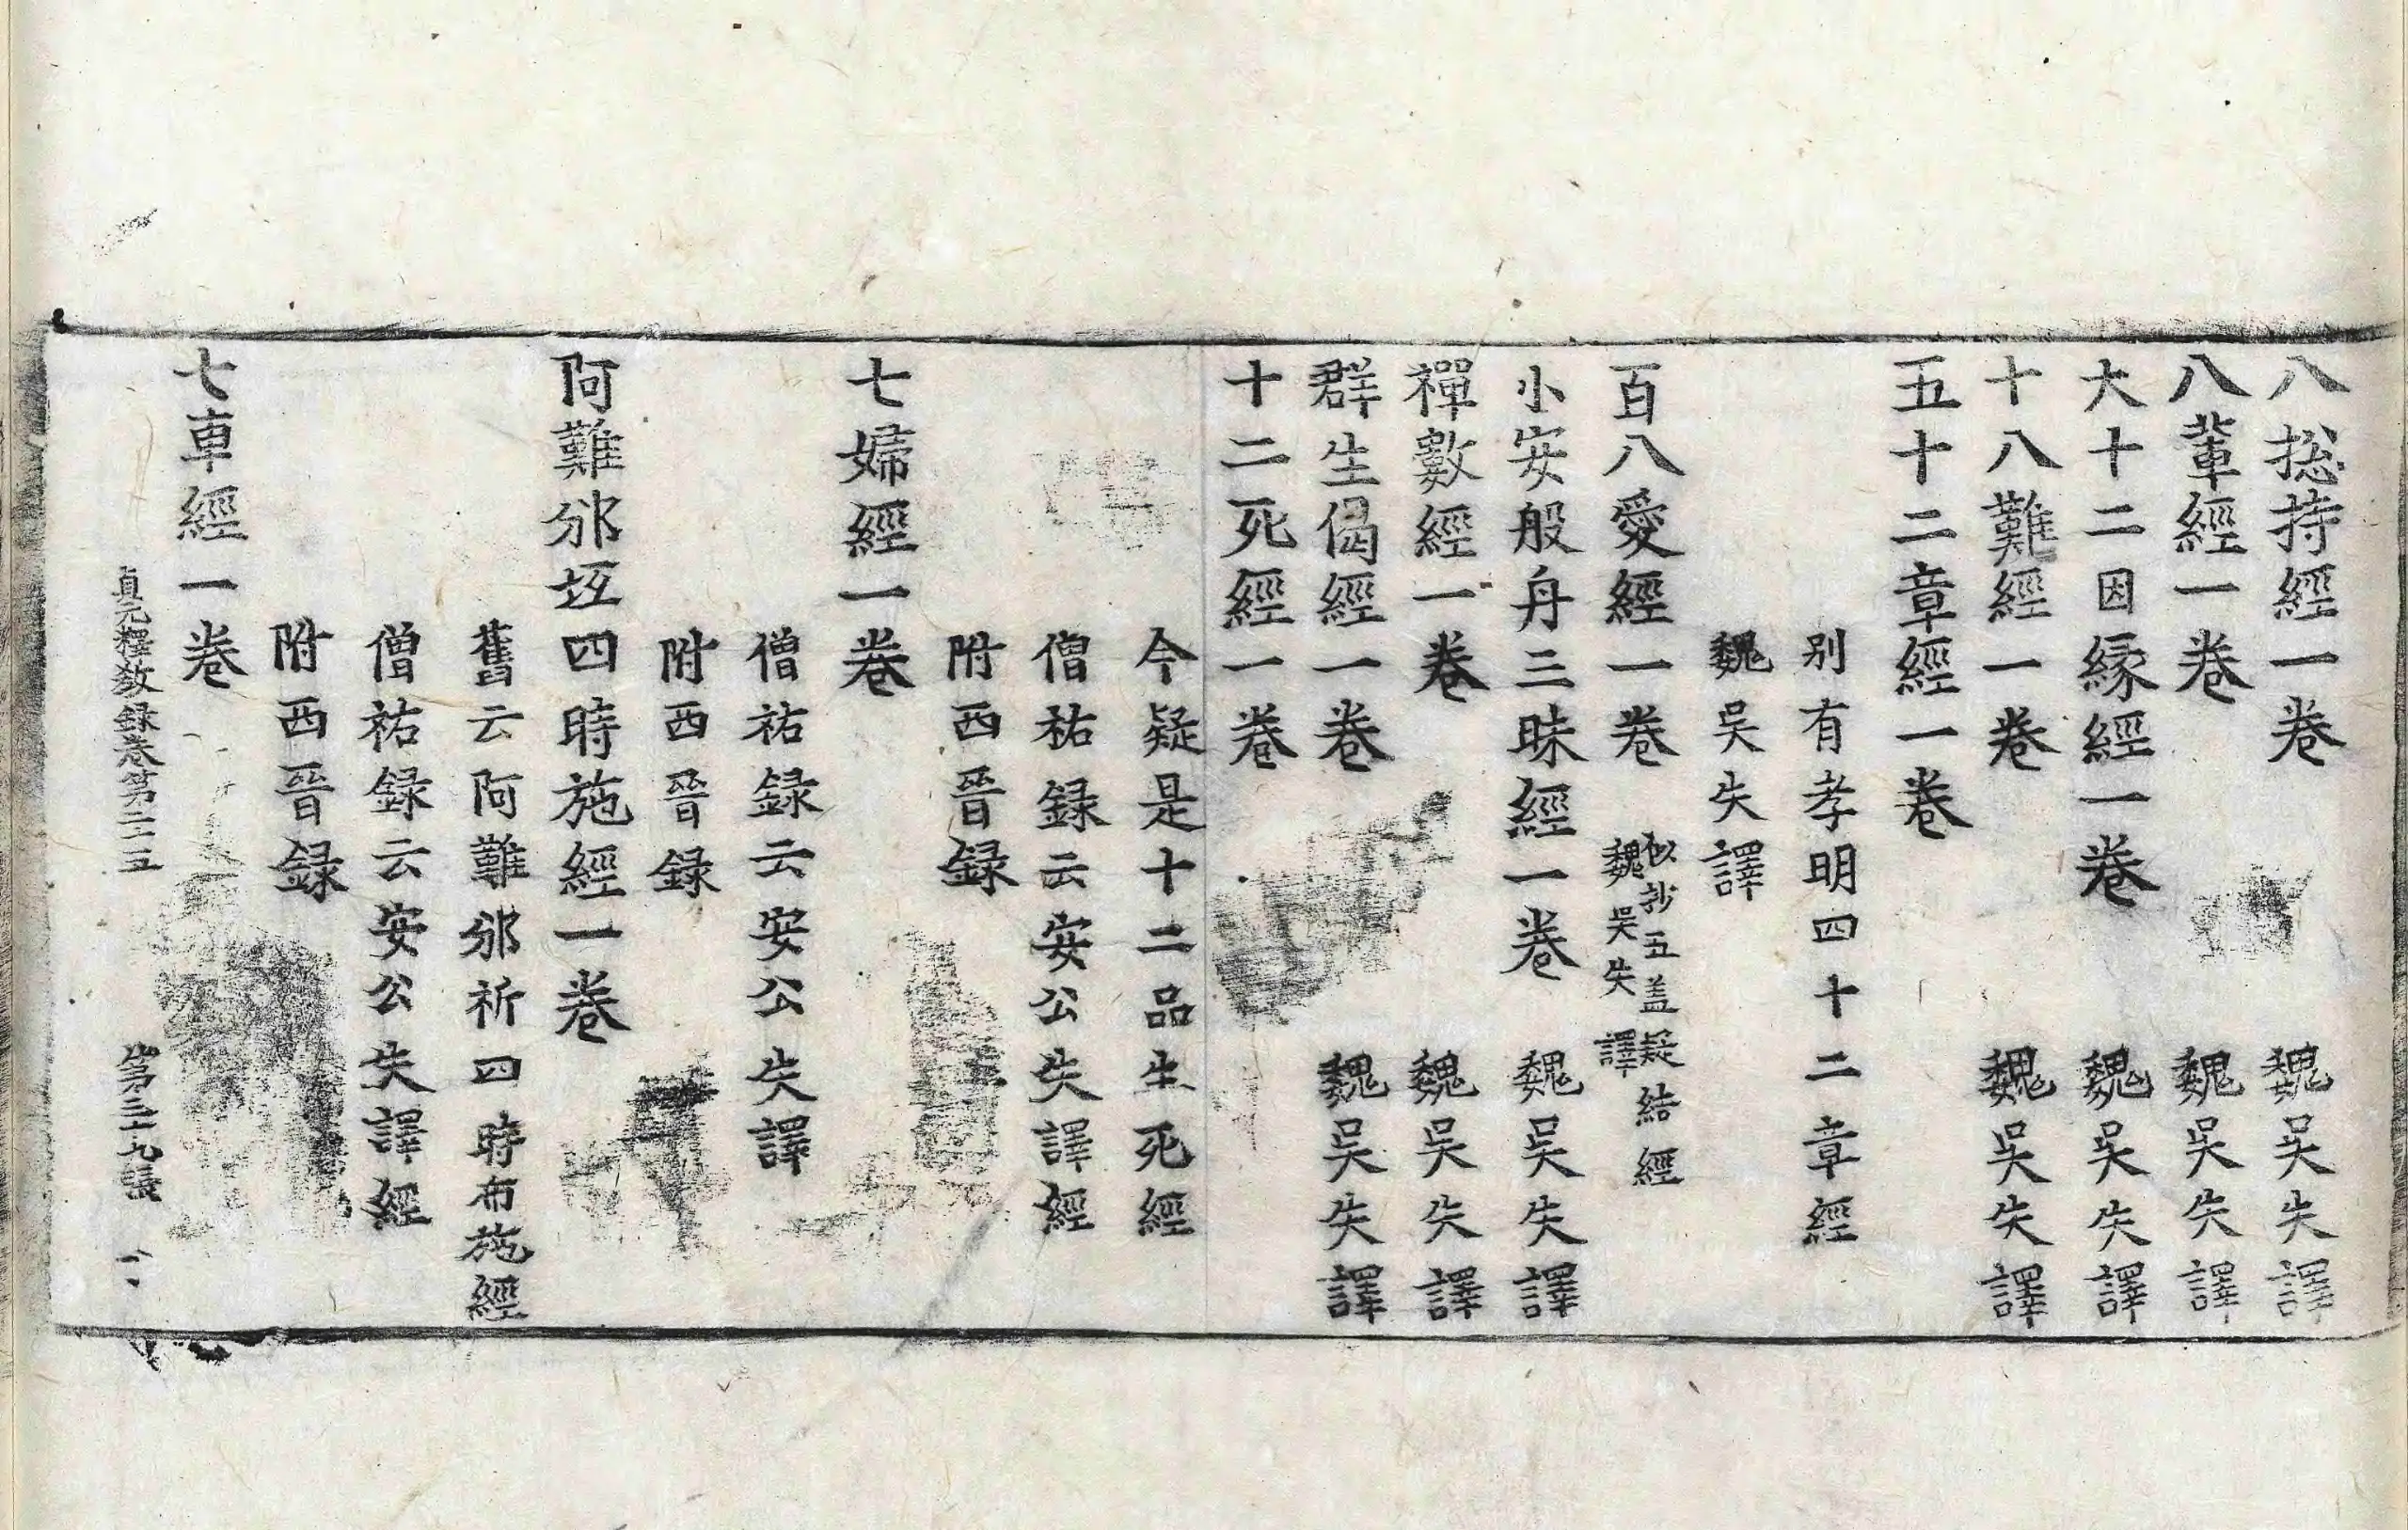 八惣持經一卷　魏吳失譯
八輩經一卷　魏吳失譯
大十二因縁經一卷　魏吳失譯
十八難經一卷　魏吳失譯
五十二章經一卷
別有孝明四十二章經
魏吳失譯
百八愛經一卷　似抄五盖疑結經
魏吳失譯
小安般舟三昧經一卷　魏吳失譯
禪數經一卷　魏吳失譯
群生偈經一卷　魏吳失譯
十二死經一卷
今疑是十二品生死經
僧祐録云安公失譯經
附西晉録
七婦經一卷
僧祐録云安公失譯
附西晉録
阿難邠坻四時施經一卷
舊云阿難邠祈四時布施經
僧祐録云安公失譯經
附西晉録
七車經一卷
貞元釋敎録卷第二十五　第三十九張